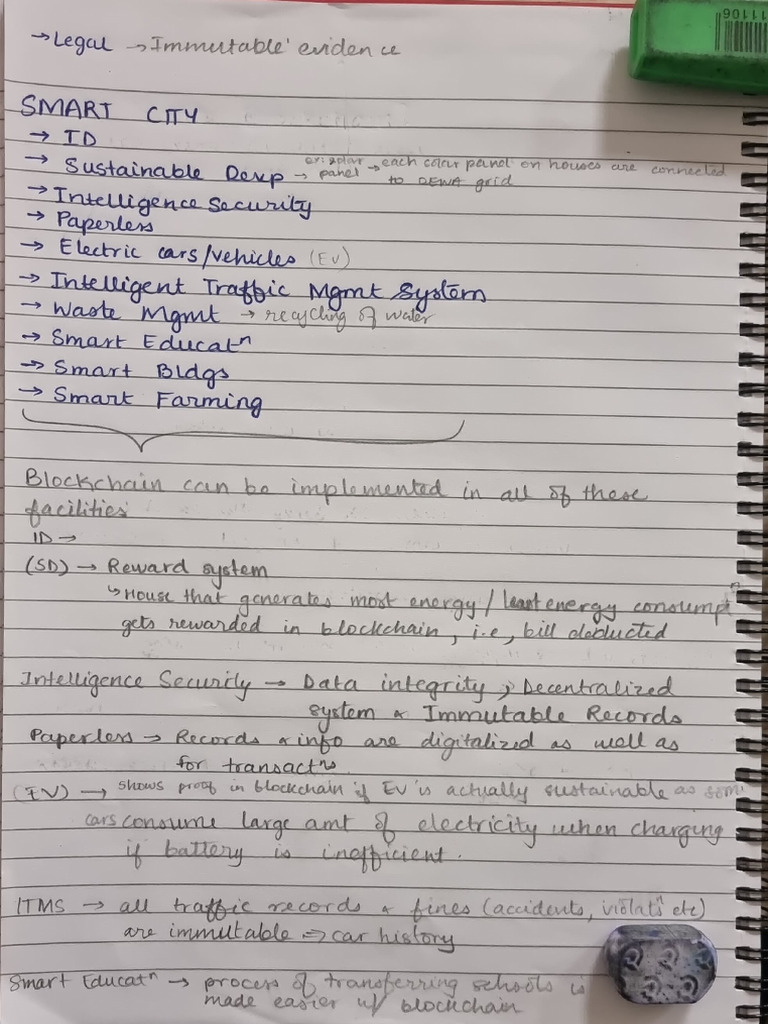 → Legal → Immutable evidence
SMART CITY
→ ID
→ Sustainable Devp → ex: solar panel → each solar panel on houses are connected
to DEWA grid
→ Intelligence Security
→ Paperless
→ Electric cars/vehicles (EV)
→ Intelligent Traffic Mgmt System
→ Waste Mgmt → recycling of water
→ Smart Educatⁿ
→ Smart Bldgs
→ Smart Farming
Blockchain can be implemented in all of these
facilities
ID →
(SD) → Reward system
↳ House that generates most energy / least energy consumptⁿ
gets rewarded in blockchain, i.e, bill deducted
Intelligence Security → Data integrity, Decentralized
system & Immutable Records
Paperless → Records & info are digitalized as well as
for transactⁿs
(EV) → shows proof in blockchain if EV is actually sustainable as some
cars consume large amt of electricity when charging
if battery is inefficient.
ITMS → all traffic records & fines (accidents, violatⁿs etc)
are immutable ⇒ car history
Smart Educatⁿ → process of transferring schools is
made easier w/ blockchain
11106